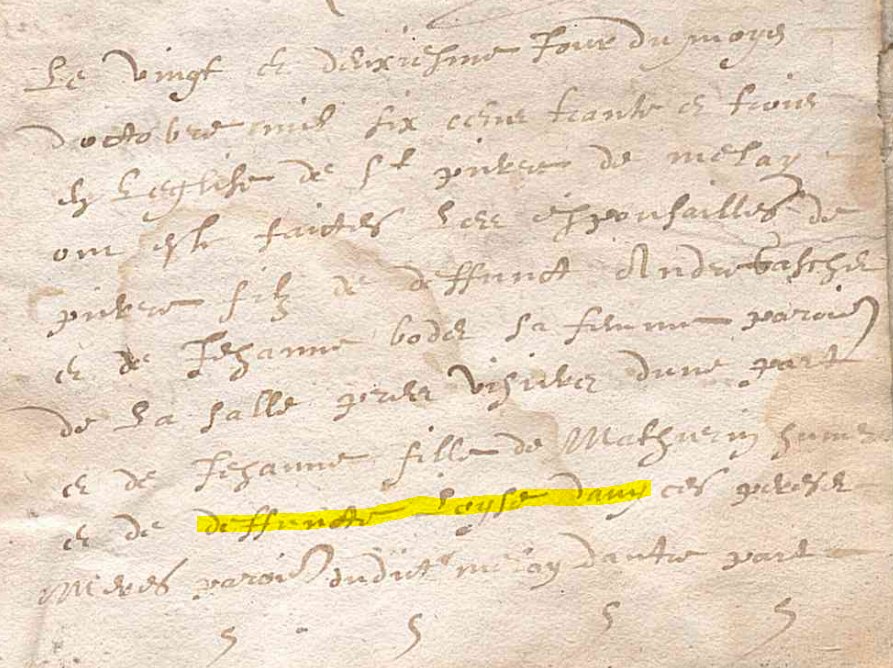 Le vingt et deuxiesme Jour du moys
doctobre mil six cens trante et trois
en Leglise de St pierre de melay
ont este faictes Les espousailles de
pierre filz de deffunct Andre Gascher
et de Jehanne bodet sa femme paroisse
de La salle pres vihiers dune part
et de Jehanne fille de Mathurin
et de deffuncte Loyse davy ces peres et
Meres paroisse dudict melay dautre part